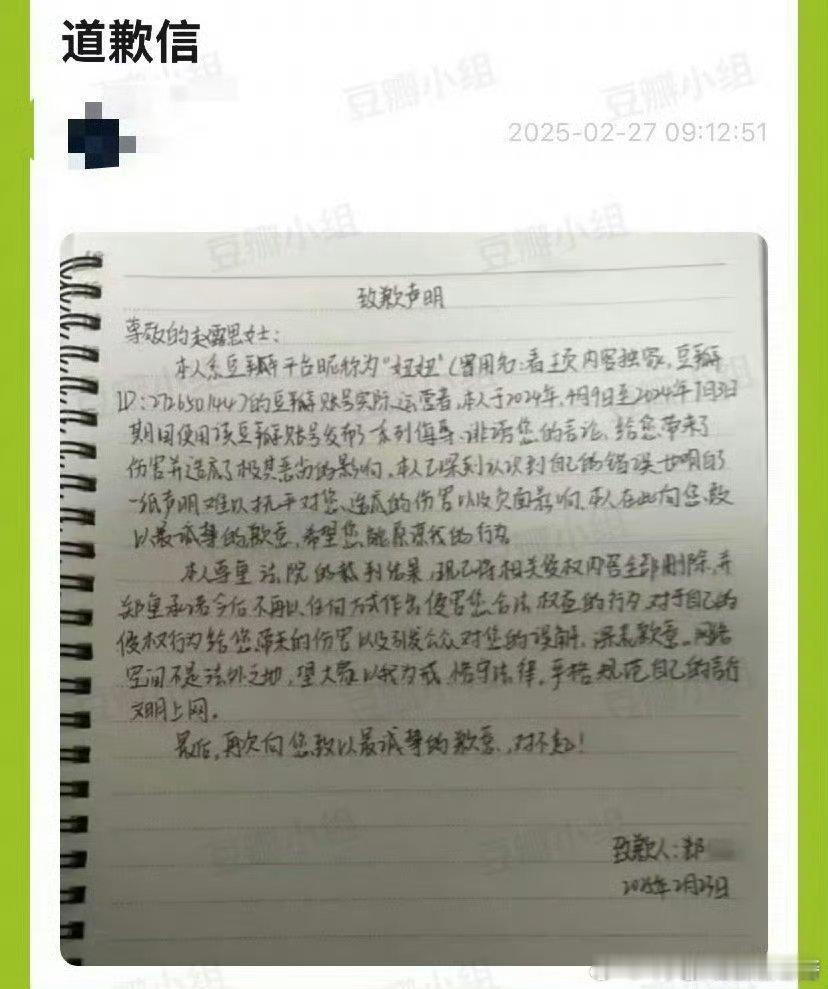 道歉信
2025-02-27 09:12:51
致歉声明
尊敬的赵露思女士：
本人系豆瓣平台昵称为"妞妞"（曾用名：看主页内容独家，豆瓣
ID：272650144)的豆瓣账号实际运营者，本人于2024年4月9日至2024年7月3日
期间使用该豆瓣账号发布了系列侮辱、诽谤您的言论，给您带来了
伤害并造成了极其恶劣的影响。本人已深刻认识到自己的错误也明白了
一纸声明难以抚平对您造成的伤害以及负面影响，本人在此向您致
以最诚挚的歉意，希望您能原谅我的行为
本人尊重法院的裁判结果，现已将相关侵权内容全部删除，并
郑重承诺今后不再以任何方式作出侵害您合法权益的行为，对于自己的
侵权行为给您带来的伤害以及引发公众对您的误解，深表歉意。网络
空间不是法外之地，望大家以我为戒，恪守法律，严格规范自己的言行
文明上网。
最后，再次向您致以最诚挚的歉意，对不起！
致歉人：郑
2025年2月23日
豆瓣小组